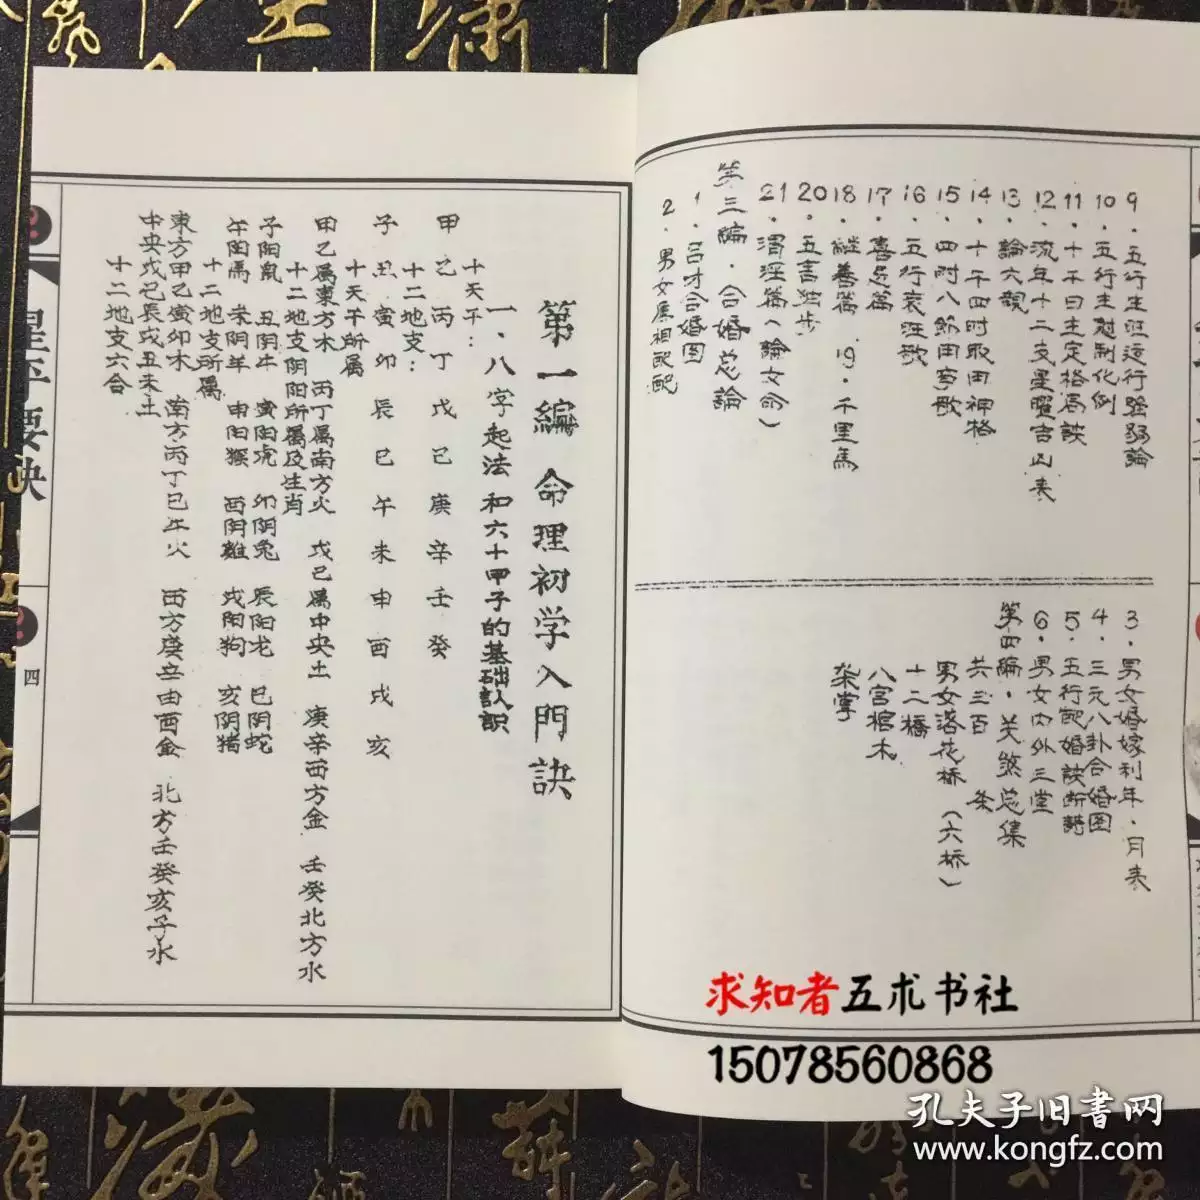 9．五行生旺运行强弱論
10．五行生尅制化例
11．十干日主定格局訣
12．流年十二支星曜吉凶表
13．論六親
14．十干四时取用神格
15．四时八节用事歌
16．五行衰旺歌
17．喜忌篇
18．继善篇　19．千里馬
20．五言独步
21．渭涇篇（論女命）
第三編．合婚总論
1．吕才合婚图
2．男女属相配配
3．男女婚嫁利年．月表
4．三元八卦合婚图
5．五行配婚訣断語
6．男女内外三堂
第四編．关煞总集
共三百　条
男女落花桥（六桥）
十二橋
八宫棺木
架掌
第一編　命理初学入門訣
一．八字起法和六十甲子的基础认识
十天干：
甲乙丙丁戊己庚辛壬癸
十二地支：
子丑寅卯辰巳午未申酉戌亥
十天干所属
甲乙属東方木　丙丁属南方火　戊己属中央土　庚辛西方金　壬癸北方水
十二地支阴阳所属及生肖
子阳鼠　丑阴牛　寅阳虎　卯阴兔　辰阳龙　巳阴蛇
午阳馬　未阴羊　申阳猴　酉阴雞　戌阳狗　亥阴猪
十二地支所属
東方甲乙寅卯木　南方丙丁巳午火　西方庚辛申酉金　北方壬癸亥子水
中央戊己辰戌丑未土
十二地支六合
星平要决
四
求知者五术书社
15078560868
孔夫子旧書网
www.kongfz.com